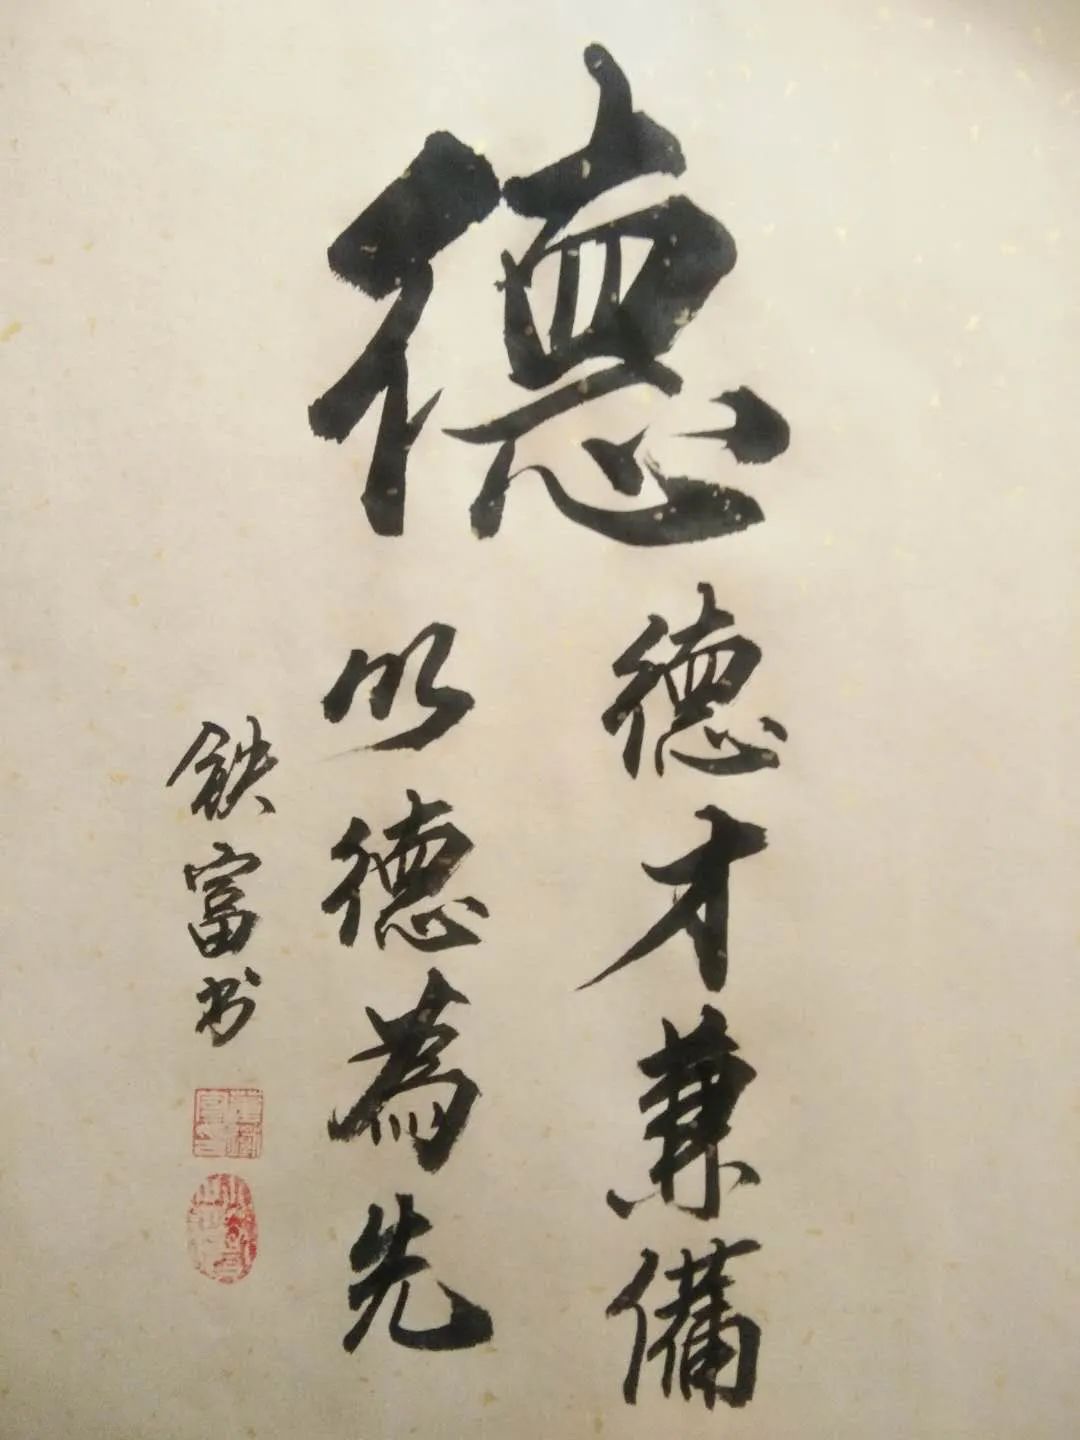 德
德才兼備
以德為先
铁富书